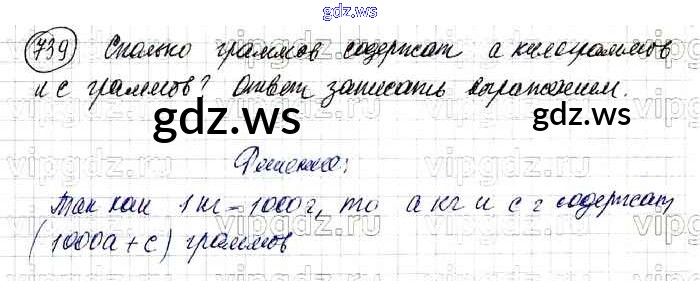 gdz.ws
739 Сколько граммов содержат а килограммов
и с граммов? Ответ записать выражением.
gdz.ws
gdz.ws
Решение:
Так как 1 кг = 1000 г, то а кг и с г содержат
(1000а + с) граммов